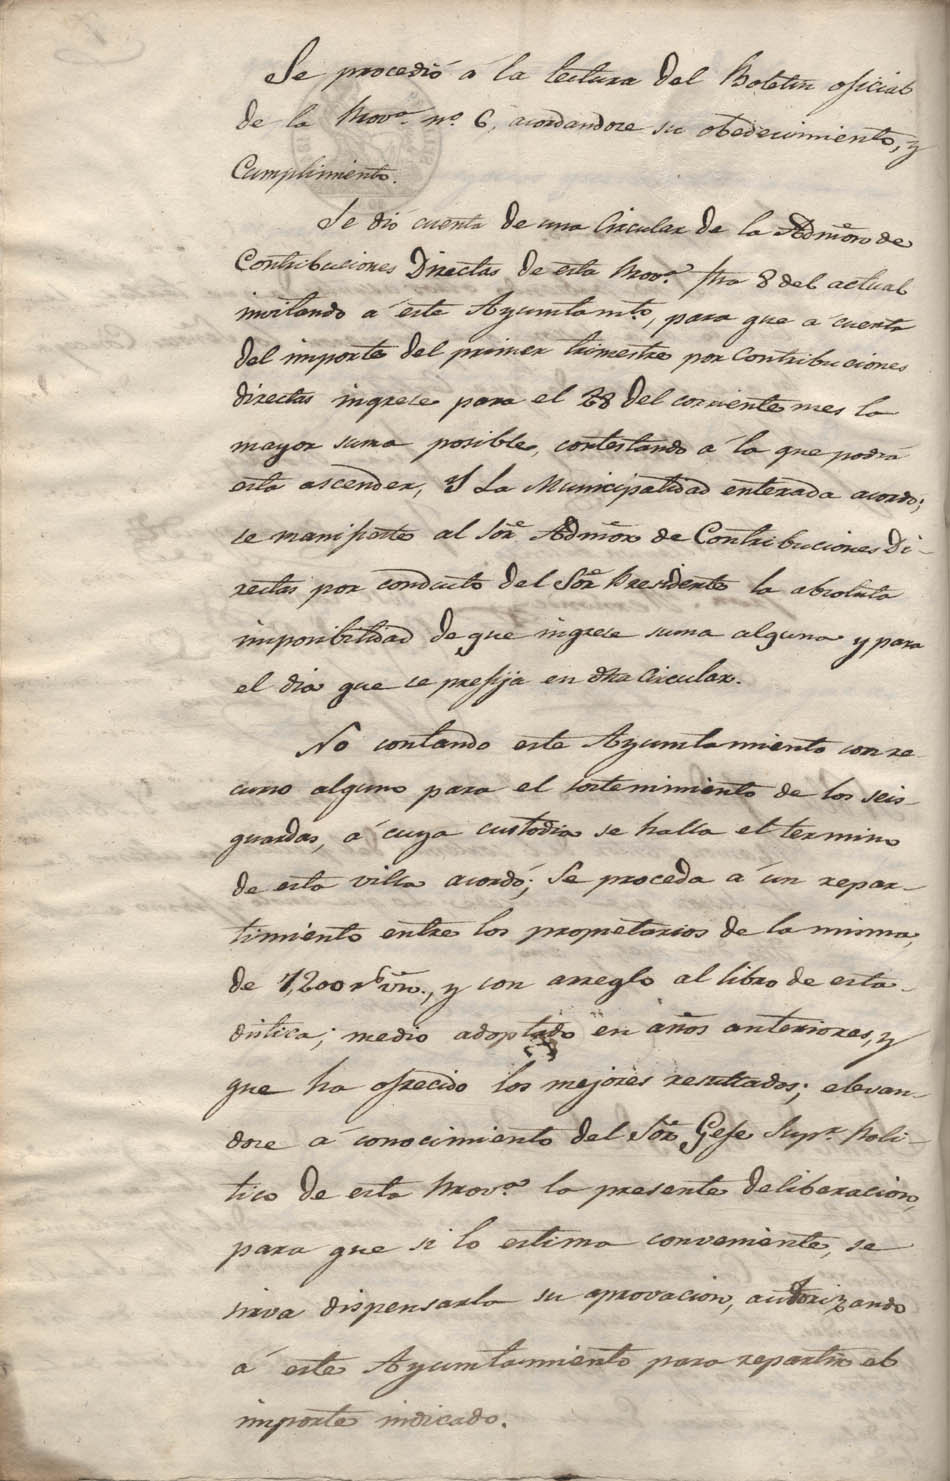 Se procedió á la lectura del Boletin oficial
de la Prov.ª n.º 6, acordandose su obedecimiento, y
Cumplimiento.
Se dió cuenta de una Circular de la Admõn de
Contribuciones Directas de esta Prov.ª fha 8 del actual
invitando á este Ayuntam.to, para que á cuenta
del importe del primer trimestre por Contribuciones
directas ingrese para el 28 del corriente mes la
mayor suma posible, contestando á la que podrá
esta ascender, Y La Municipalidad enterada acordó;
se manifieste al Sõr Admõr de Contribuciones Di-
rectas por conducto del Sõr Presidente la absoluta
imposibilidad de que ingrese suma alguna y para
el dia que se prefija en dha Circular.
No contando este Ayuntamiento con re-
curso alguno para el sostenimiento de los seis
guardas, á cuya custodia se halla el termino
de esta villa acordó; Se proceda á un repar-
timiento entre los propietarios de la misma,
de 7,200 r.s vñ., y con arreglo al libro de esta-
distica; medio adoptado en años anteriores, y
que ha ofrecido los mejores resultados; elevan-
dose á conocimiento del Sõr Gefe Sup.r Poli-
tico de esta Prov.ª la presente deliberacion,
para que si lo estima conveniente, se
sirva dispensarla su aprovacion, autorizando
á este Ayuntamiento para repartir el
importe indicado.